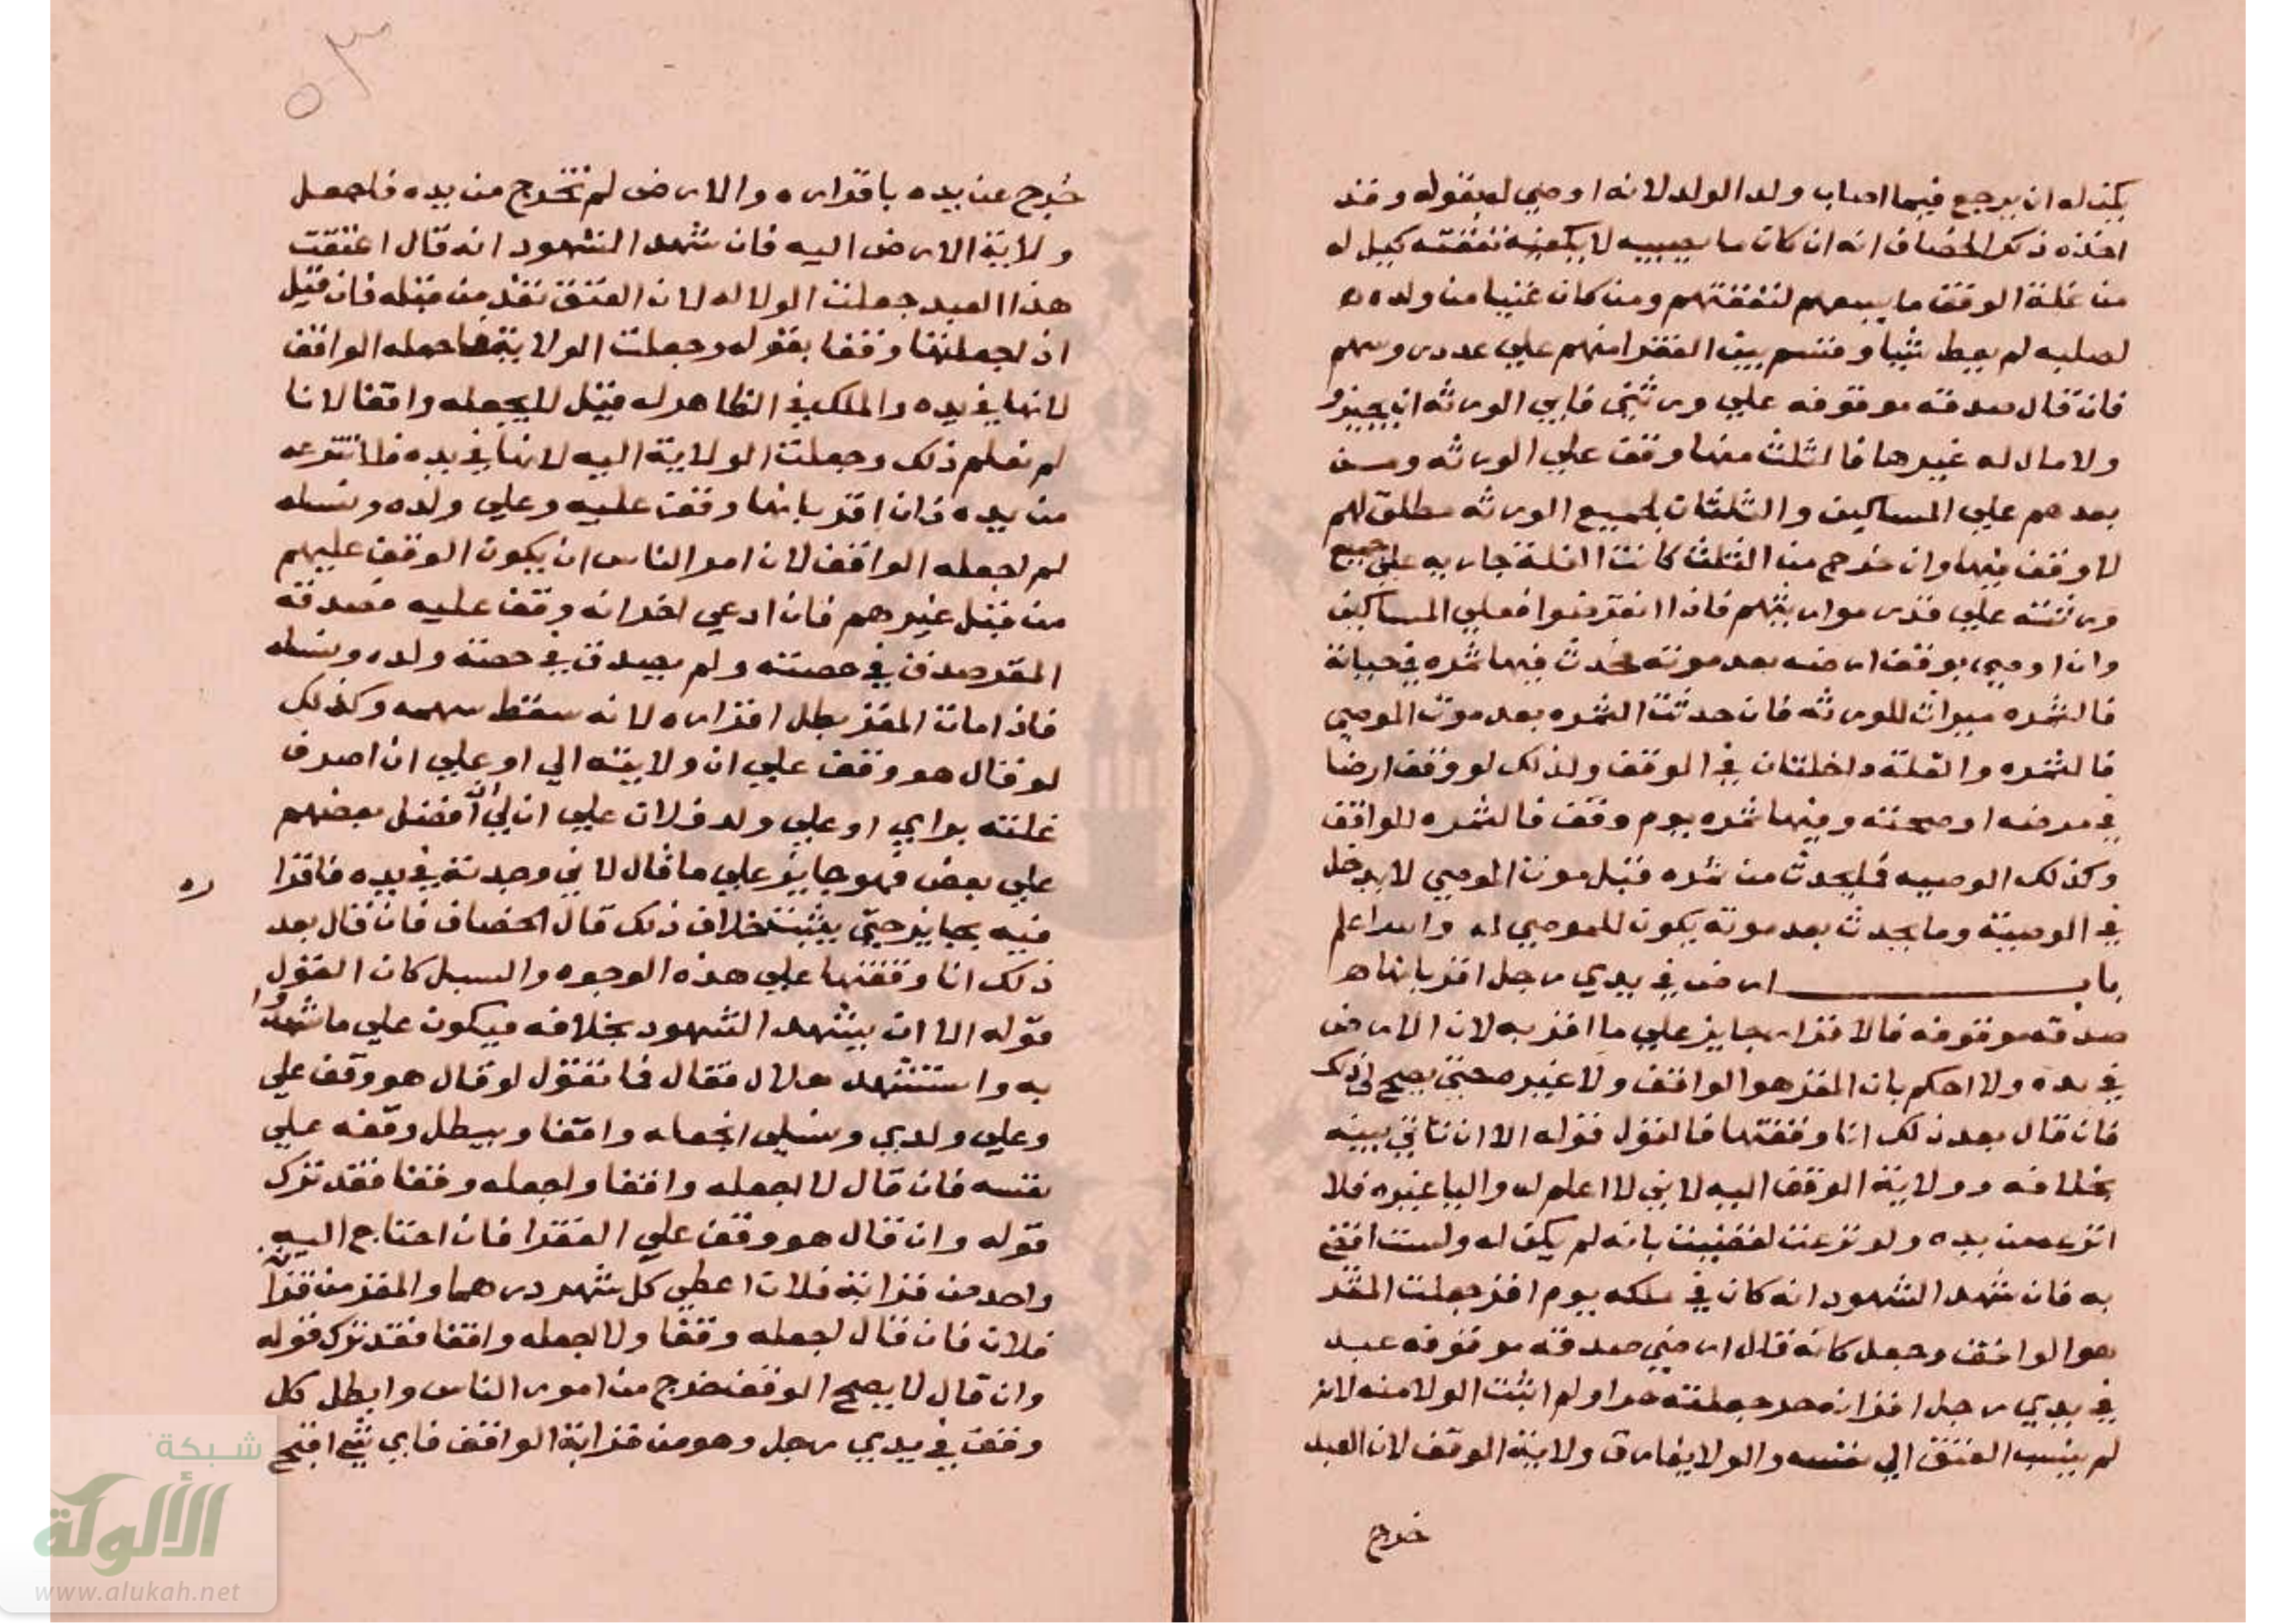 يكن له ان يرجع فيما اصاب ولد الولد لانه اوصي له بقوله وقد
اخذه ذكر الخصاف انه ان كان ما يصيبه لا يكفيه نفقته كمل له
من غلة الوقف ما يسعهم لنفقتهم ومن كان غنيا من ولده
لصلبه لم يعط شيا وقسم بين الفقرا منهم علي عدد روسهم
فان قال صدقه موقوفه علي ورثتي فابي الورثه ان يجيزوا
ولا مال له غيرها فالثلث منها وقف علي الورثه ومن
بعدهم علي المساكين والثلثان لجميع الورثه مطلق لهم
لا وقف فيها وان خرج من الثلث كانت الغلة جاريه علي جميع
ورثته علي قدر مواريثهم فاذا انقرضوا فعلي المساكين
وان اوصي بوقف ارضه بعد موته فحدث فيها ثمره في حياته
فالثمره ميراث للورثه فان حدثت الثمره بعد موت الموصي
فالثمره والغلة داخلتان في الوقف ولذلك لو وقف ارضا
في مرضه او صحته وفيها ثمره يوم وقف فالثمره للواقف
وكذلك الوصيه فما يحدث من ثمره قبل موت الموصي لا يدخل
في الوصية وما يحدث بعد موته يكون للموصي له والله اعلم
باب ارض في يدي رجل اقر بانها
صدقه موقوفه فالاقرار جايز علي ما اقر به لان الارض
في يده ولا احكم بان المقر هو الواقف ولا غيره حتي يصح لي ذلك
فان قال بعد ذلك انا وقفتها فالقول قوله الا ان تاتي بينه
بخلافه وولاية الوقف اليه لاني لا اعلم له واليا غيره فلا
انزعه من يده ولو نزعت لقضيت بانه لم يكن له ولست اقضي
به فان شهد الشهود انه كان في ملكه يوم اقر جعلت المقر
هو الواقف وجعل كانه قال ارضي صدقه موقوفه عبد
في يدي رجل اقر انه حر جعلته حرا ولم اثبت الولا منه لانه
لم ينسب العتق الي نفسه والولا يفارق ولاية الوقف لان العبد
خرج
خرج عن يده باقراره والارض لم تخرج من يده فاجعل
ولاية الارض اليه فان شهد الشهود انه قال اعتقت
هذا العبد جعلت الولا له لان العتق نفذ من قبله فان قيل
اذ اجعلتها وقفا بقوله وجعلت الولاية اجعله الواقف
لانها في يده والملك في الظاهر له قيل لا يجعله واقفا لانا
لم نعلم ذلك وجعلت الولاية اليه لانها في يده فلا تنتزعه
من يده فان اقر بانها وقف عليه وعلي ولده ونسله
لم اجعله الواقف لان امر الناس ان يكون الوقف عليهم
من قبل غيرهم فان ادعي اخر انه وقف عليه فصدقه
المقر صدق في حصته ولم يصدق في حصة ولده ونسله
فاذا مات المقر بطل اقراره لانه سقط سهمه وكذلك
لو قال هو وقف علي ان ولايته الي او علي ان اصرف
غلته برايي او علي ولد فلان علي ان لي ان افضل بعضهم
علي بعض فهو جايز علي ما قال لاني وجدته في يده فاقرا
ره
فيه بجايز حتي يثبت خلاف ذلك قال الخصاف فان قال بعد
ذلك انا وقفتها علي هذه الوجوه والسبل كان القول
قوله الا ان يشهد الشهود بخلافه فيكون علي ما شهدوا
به واستشهد هلال فقال فما تقول لو قال هو وقف علي
وعلي ولدي ونسلي اتجعله واقفا ويبطل وقفه علي
نفسه فان قال لا اجعله واقفا واجعله وقفا فقد ترك
قوله وان قال هو وقف علي الفقرا فان احتاج اليه
واحد من قرابة فلان اعطي كل شهر درهما والمقر من قرابة
فلان فان قال اجعله وقفا ولا اجعله واقفا فقد ترك قوله
وان قال لا يصح الوقف خرج من امور الناس وابطل كل
وقف في يدي رجل وهو من قرابة الواقف فاي شي اقبح
شبكة
الألوكة
www.alukah.net